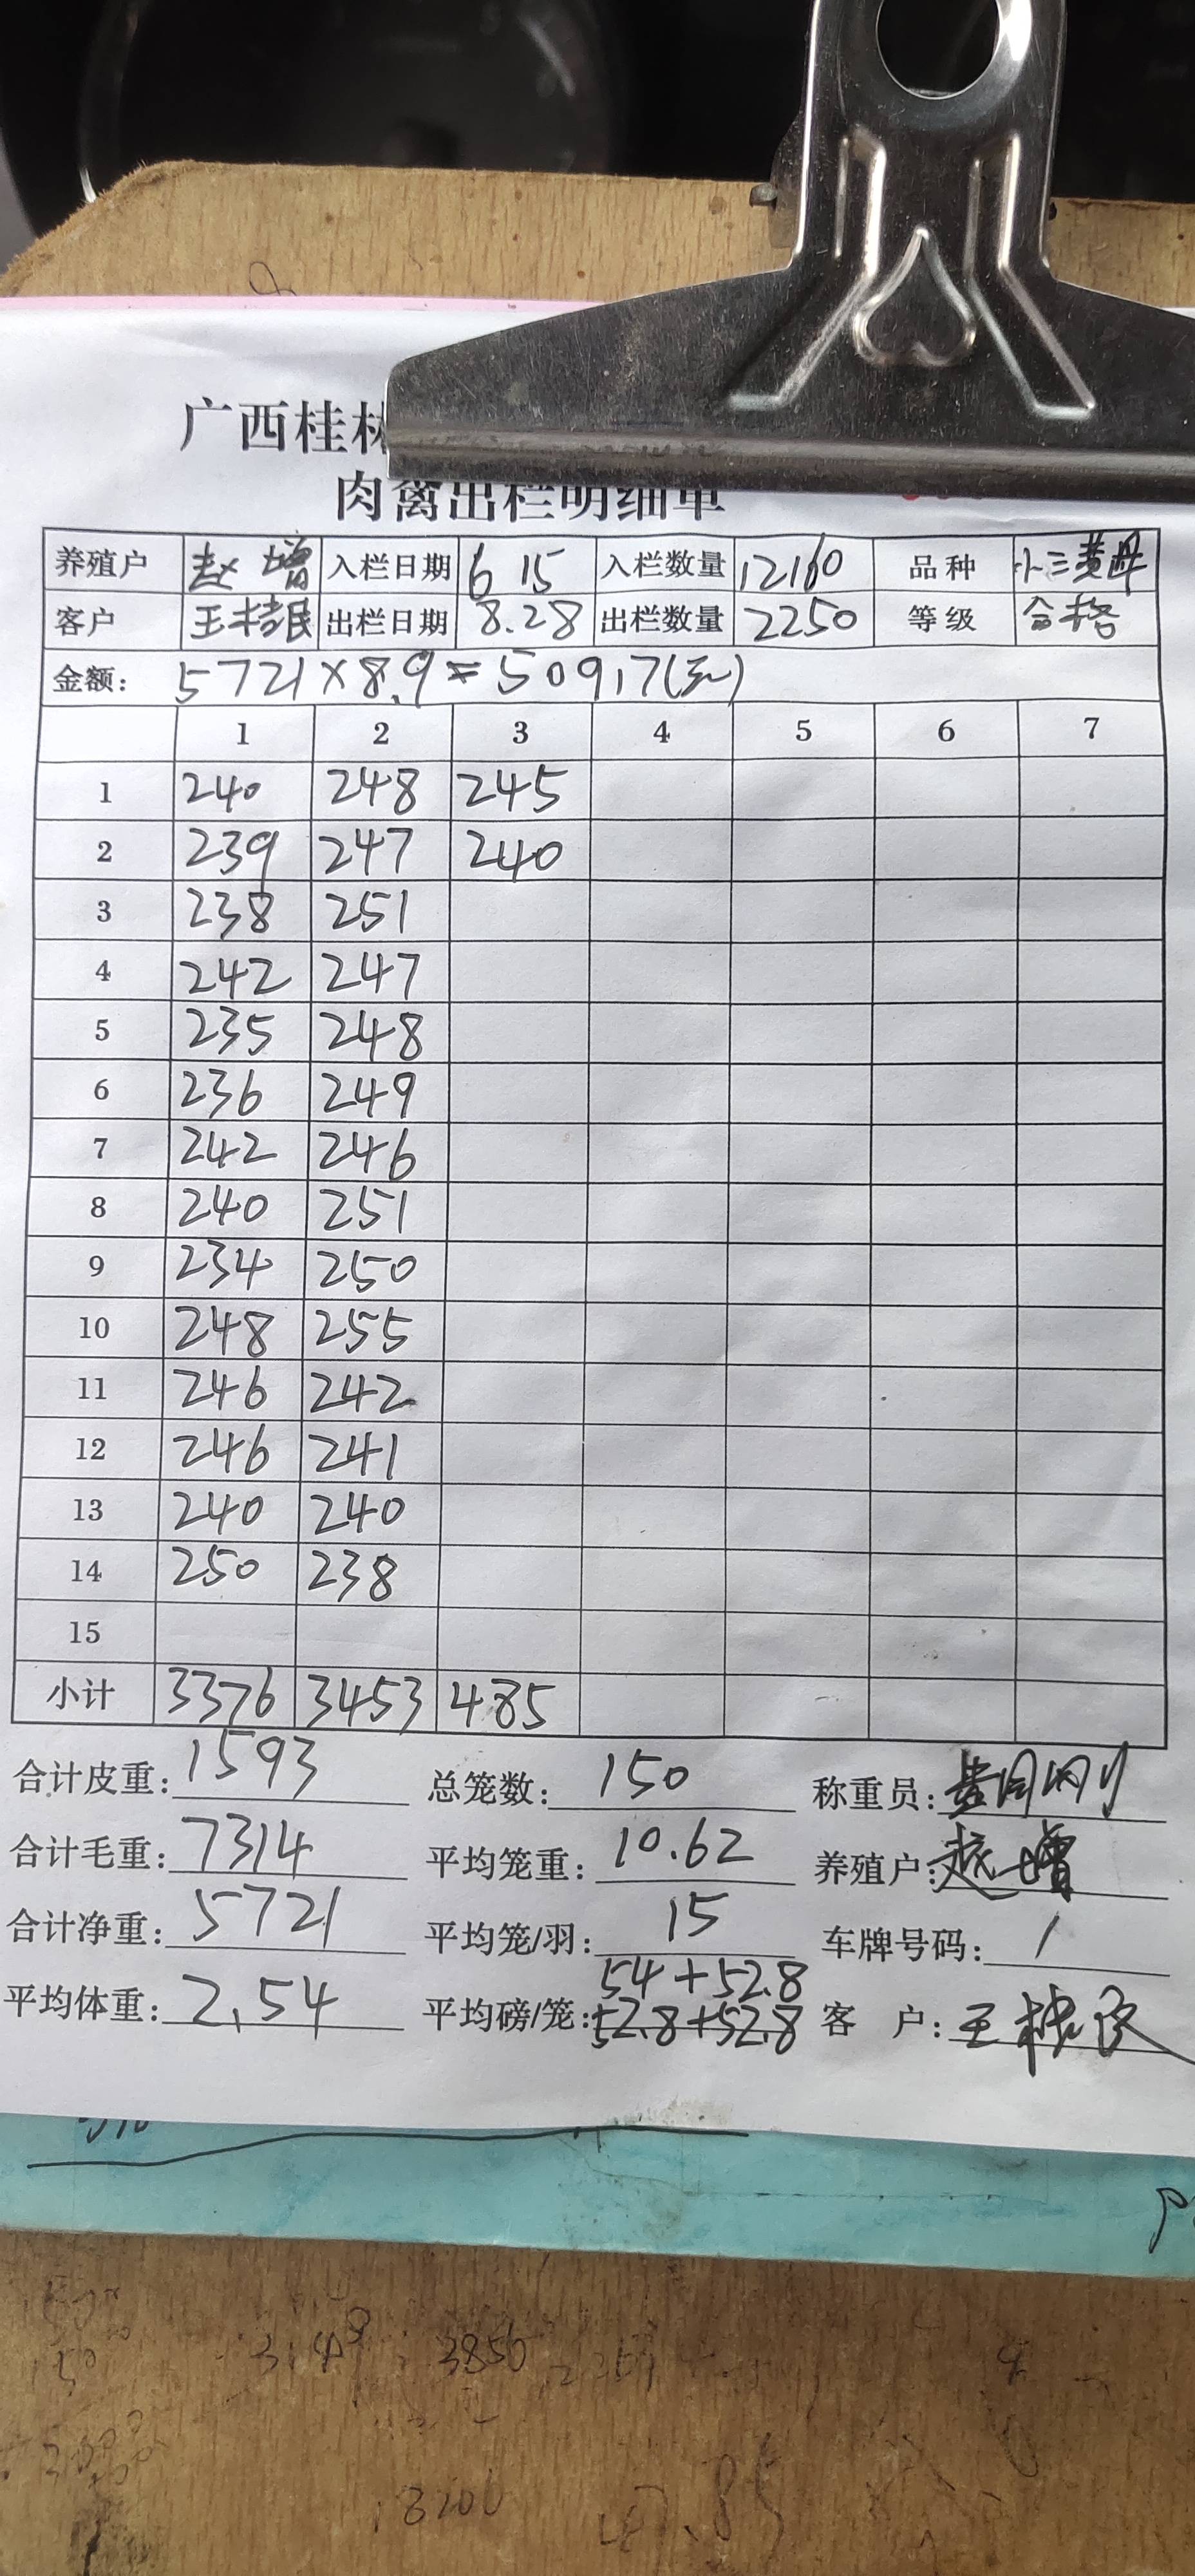 广西桂林
肉禽出栏明细单
养殖户 赵增 入栏日期 6 15 入栏数量 12160 品种 小三黄
客户 王 出栏日期 8.28 出栏数量 2250 等级 合格
金额: 5721×8.9=50917(元)
1 2 3 4 5 6 7
1 240 248 245
2 239 247 240
3 238 251
4 242 247
5 235 248
6 236 249
7 242 246
8 240 251
9 234 250
10 248 255
11 246 242
12 246 241
13 240 240
14 250 238
15
小计 3376 3453 485
合计皮重: 1593 总笼数: 150 称重员:
合计毛重: 7314 平均笼重: 10.62 养殖户: 赵增
合计净重: 5721 平均笼/羽: 15 车牌号码: /
54+52.8
平均体重: 2.54 平均磅/笼: 52.8+52.8 客 户: 王
3850
3200